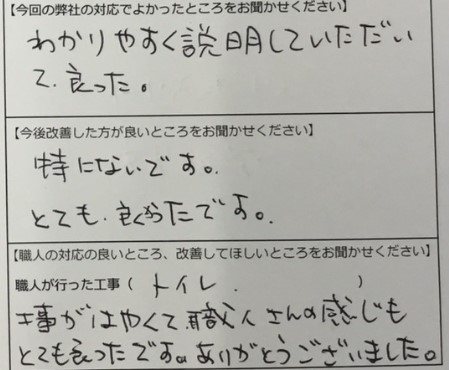 【今回の弊社の対応でよかったところをお聞かせください】
わかりやすく説明していただい
て、良った。
【今後改善した方が良いところをお聞かせください】
特にないです。
とても、良かったです。
【職人の対応の良いところ、改善してほしいところをお聞かせください】
職人が行った工事（ トイレ． ）
工事がはやくて、職人さんの感じも
とても良ったです。ありがとうございました。